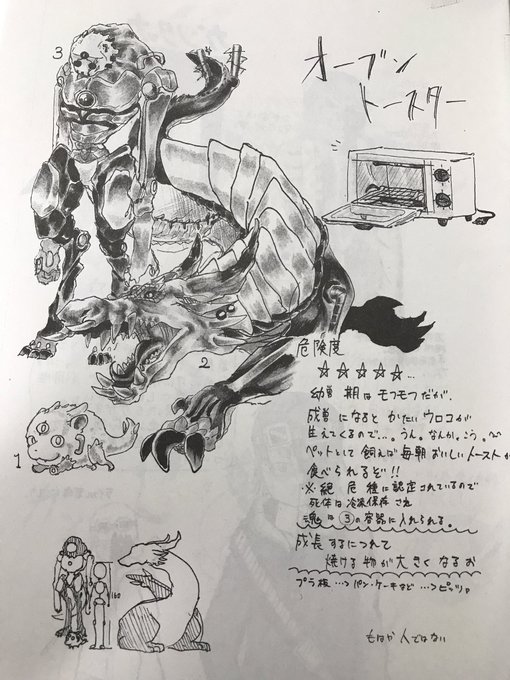 オーブン
トースター
3
2
1
危険度
☆☆☆☆☆…
幼獣期はモフモフだが、
成獣になるとかたいウロコが
生えてくるので…。うん。なんか。こう。〜
ペットとして飼えば毎朝おいしいトーストが
食べられるぞ!!
※絶危種に認定されているので
死体は冷凍保存され
魂は③の容器に入れられる。
成長するにつれて
焼ける物が大きくなるお
プラ板…→パン・ケーキなど…→ピッツァ
160
もはや人ではない